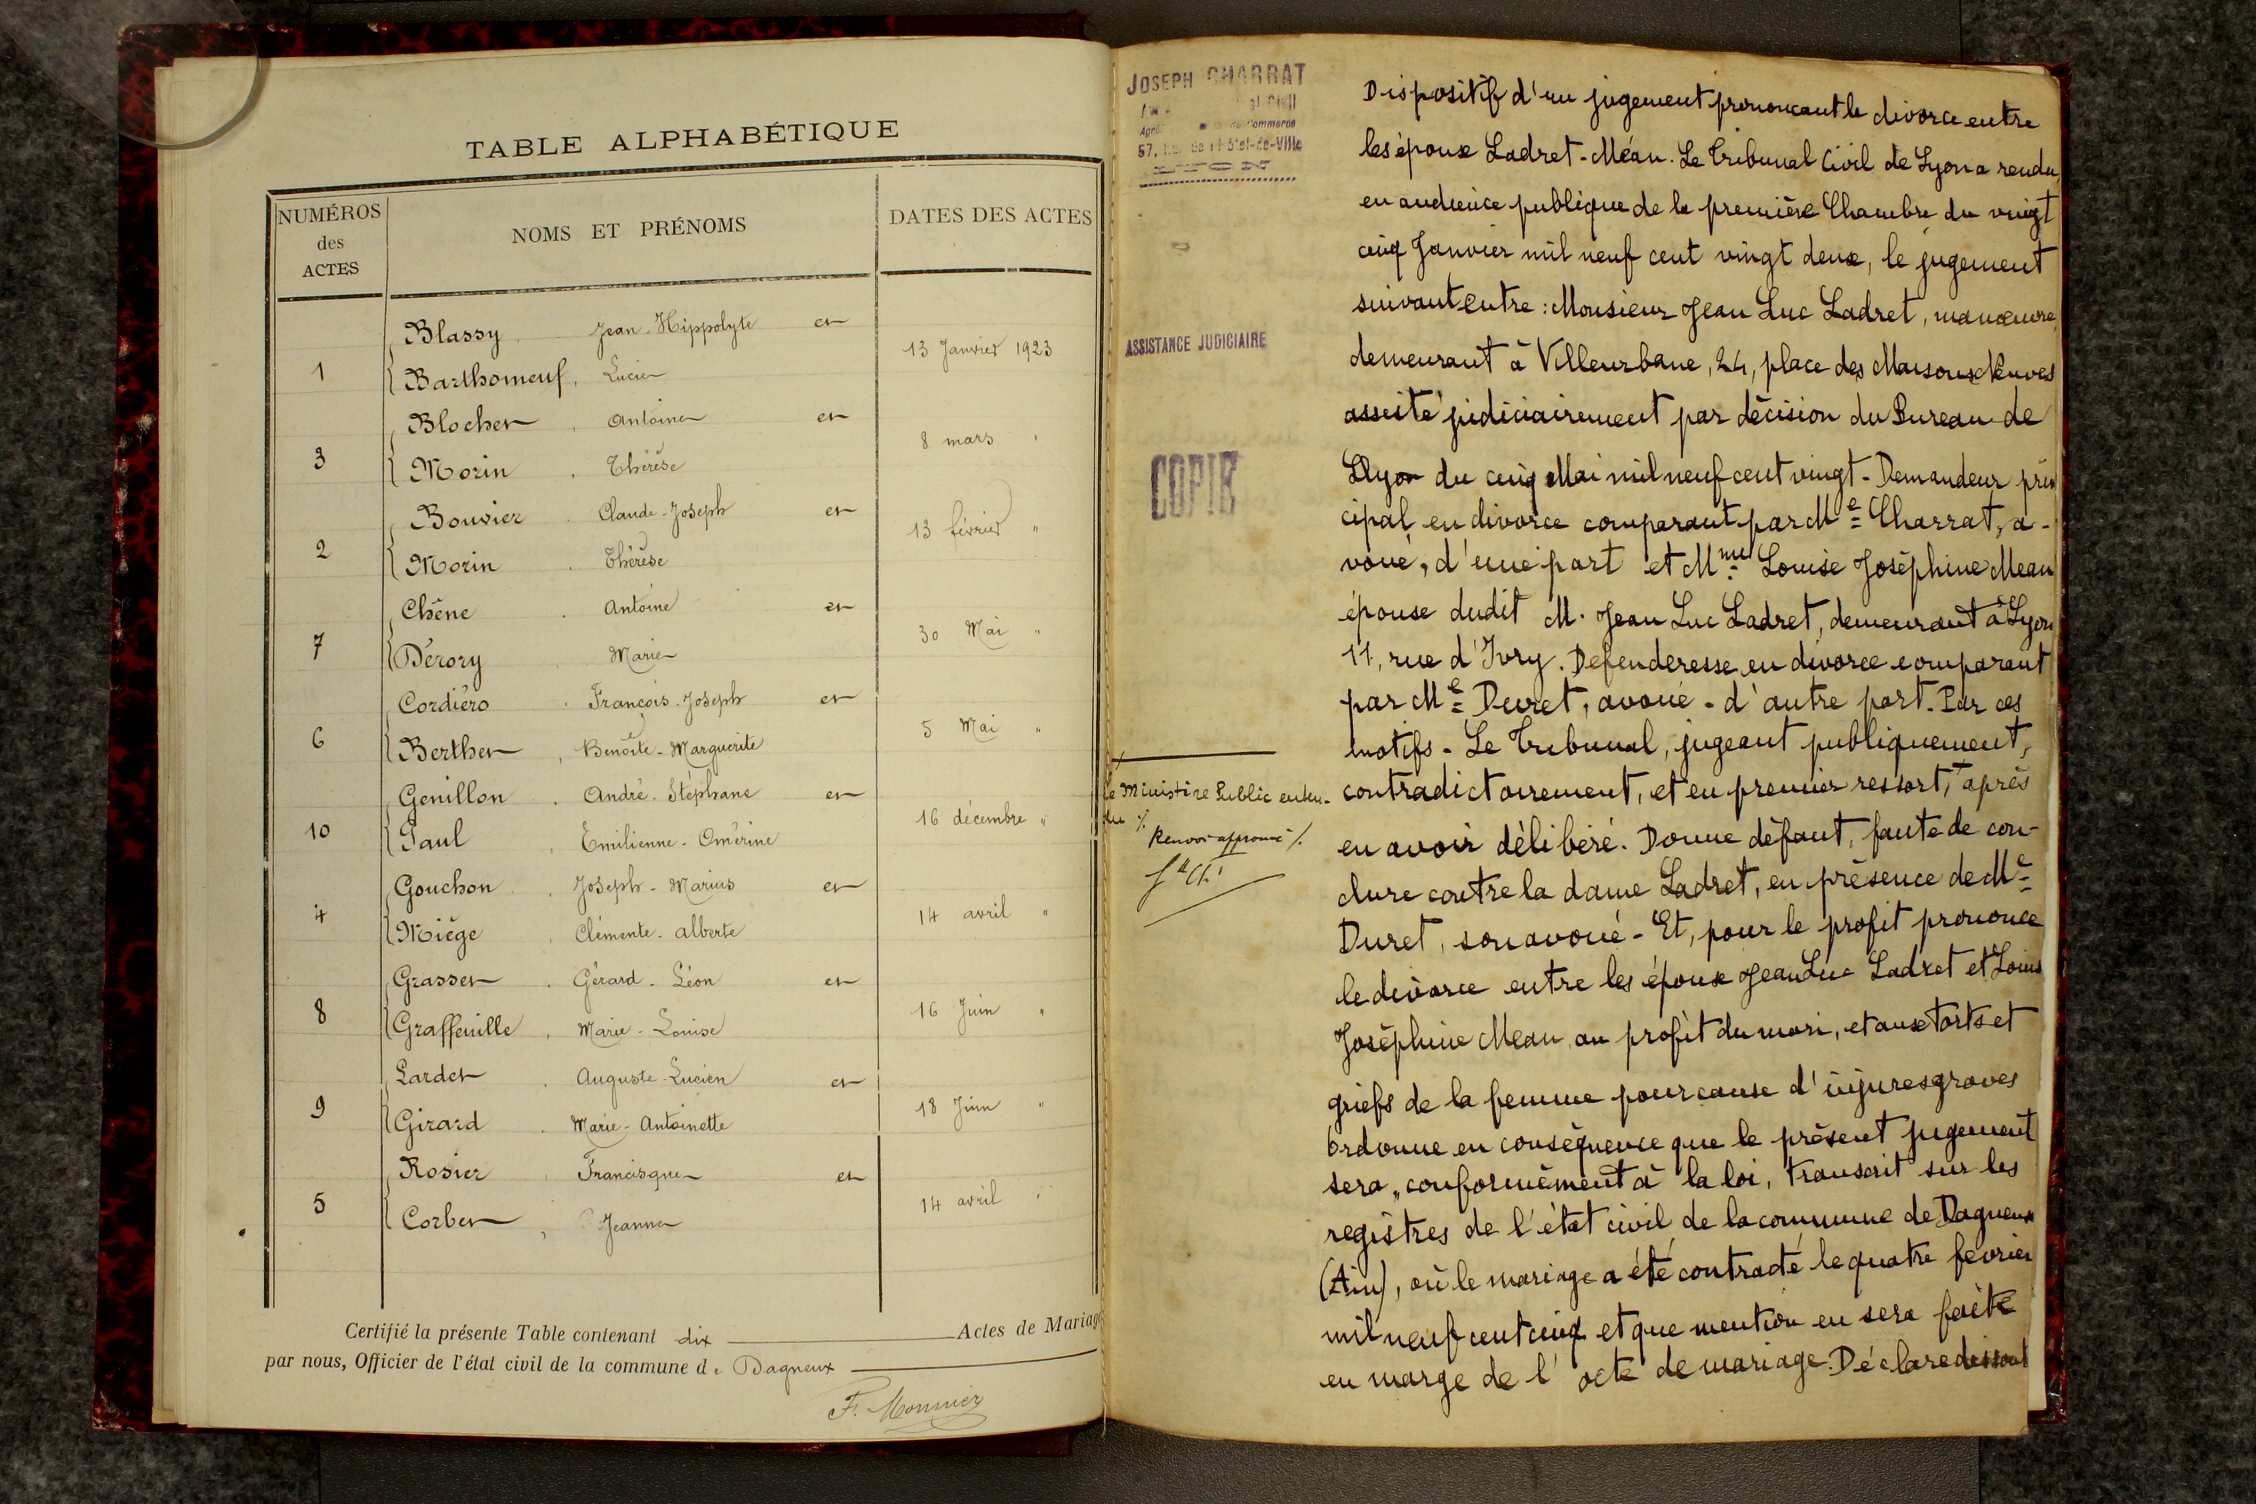 TABLE ALPHABÉTIQUE
NUMÉROS
des
ACTES
NOMS ET PRÉNOMS
DATES DES ACTES
Blassy Jean-Hippolyte et
1 13 Janvier 1923
Barthomeuf, Lucie
Blochet, Antoine et
3 8 mars "
Morin, Thérèse
Bouvier Claude-Joseph et
2 13 février "
Morin, Thérèse
Chêne, Antoine et
7 30 Mai "
Dérory, Marie
Cordiéro, François-Joseph et
6 5 Mai "
Berthet, Benoîte-Marguerite
Genillon, André-Stéphane et
10 16 décembre "
Paul, Emilienne-Omérine
Gouchon, Joseph-Marius et
4 14 avril "
Miège, Clémente-Alberte
Grasset, Gérard-Léon et
8 16 Juin "
Graffeuille, Marie-Louise
Lardet, Auguste-Lucien et
9 18 Juin "
Girard, Marie-Antoinette
Rosier, Francisque et
5 14 avril "
Corbet, Jeanne
Certifié la présente Table contenant dix Actes de Mariage
par nous, Officier de l'état civil de la commune de Dagneux
F. Monnier
JOSEPH CHARRAT
Commerce
67, de l'Hôtel-de-Ville
LYON
ASSISTANCE JUDICIAIRE
COPIE
le Ministère Public enten-
du ./.
Renvoi approuvé ./.
Dispositif d'un jugement prononcant le divorce entre
les époux Ladret-Méan. Le Tribunal Civil de Lyon a rendu,
en audience publique de la première Chambre du vingt
cinq Janvier mil neuf cent vingt deux, le jugement
suivant entre : Monsieur Jean Luc Ladret, manœuvre,
demeurant à Villeurbane, 24, place des Maisons Neuves
assisté judiciairement par décision du Bureau de
Lyon du cinq Mai mil neuf cent vingt - Demandeur prin
cipal en divorce comparant par Me Charrat, a-
voué, d'une part et Mme Louise Joséphine Mean
épouse dudit M. Jean Luc Ladret, demeurant à Lyon
11, rue d'Ivry. Defenderesse en divorce comparant
par Me Duret, avoué - d'autre part. Par ces
motifs - Le Tribunal, jugeant publiquement,
contradictoirement, et en premier ressort, + après
en avoir délibéré. Donne défaut, faute de con-
clure contre la dame Ladret, en présence de Me
Duret, son avoué - Et, pour le profit prononce
le divorce entre les époux Jean Luc Ladret et Louise
Joséphine Mean au profit du mari, et aux torts et
griefs de la femme pour cause d'injures graves
Ordonne en conséquence que le présent jugement
sera, conformément à la loi, transcrit sur les
registres de l'état civil de la commune de Dagneux
(Ain), où le mariage a été contracté le quatre février
mil neuf cent cinq et que mention en sera faite
en marge de l'acte de mariage. Déclare dissout